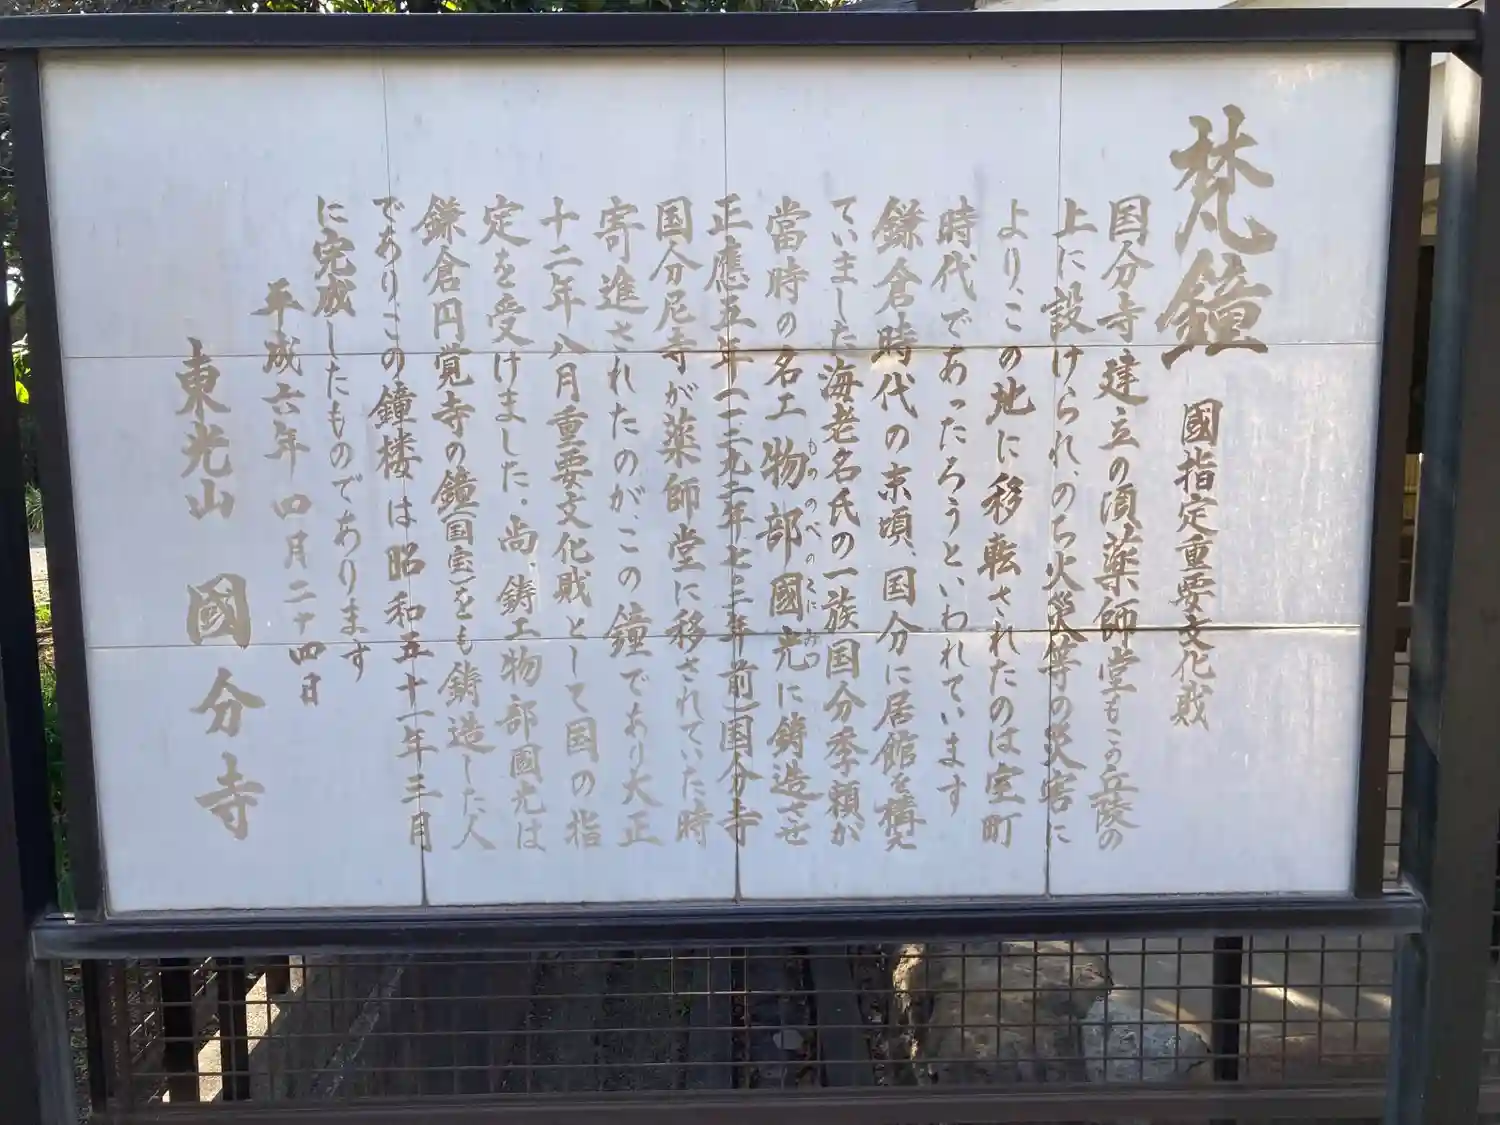 梵鐘 國指定重要文化財
国分寺建立の頃、薬師堂もこの丘陵の
上に設けられ、のち火災等の災害に
より、この地に移転されたのは室町
時代であったろうといわれています
鎌倉時代の末頃、国分に居館を構え
ていました海老名氏の一族国分季頼が
當時の名工物部國光に鋳造させ
もののべのくにみつ
正應五年(一二九二年、七〇二年前)国分寺
国分尼寺が薬師堂に移されていた時
寄進されたのが、この鐘であり大正
十二年八月重要文化財として国の指
定を受けました。尚、鋳工物部國光は
鎌倉円覚寺の鐘(国宝)をも鋳造した人
でありこの鐘楼は昭和五十一年三月
に完成したものであります
平成六年四月二十四日
東光山 國分寺